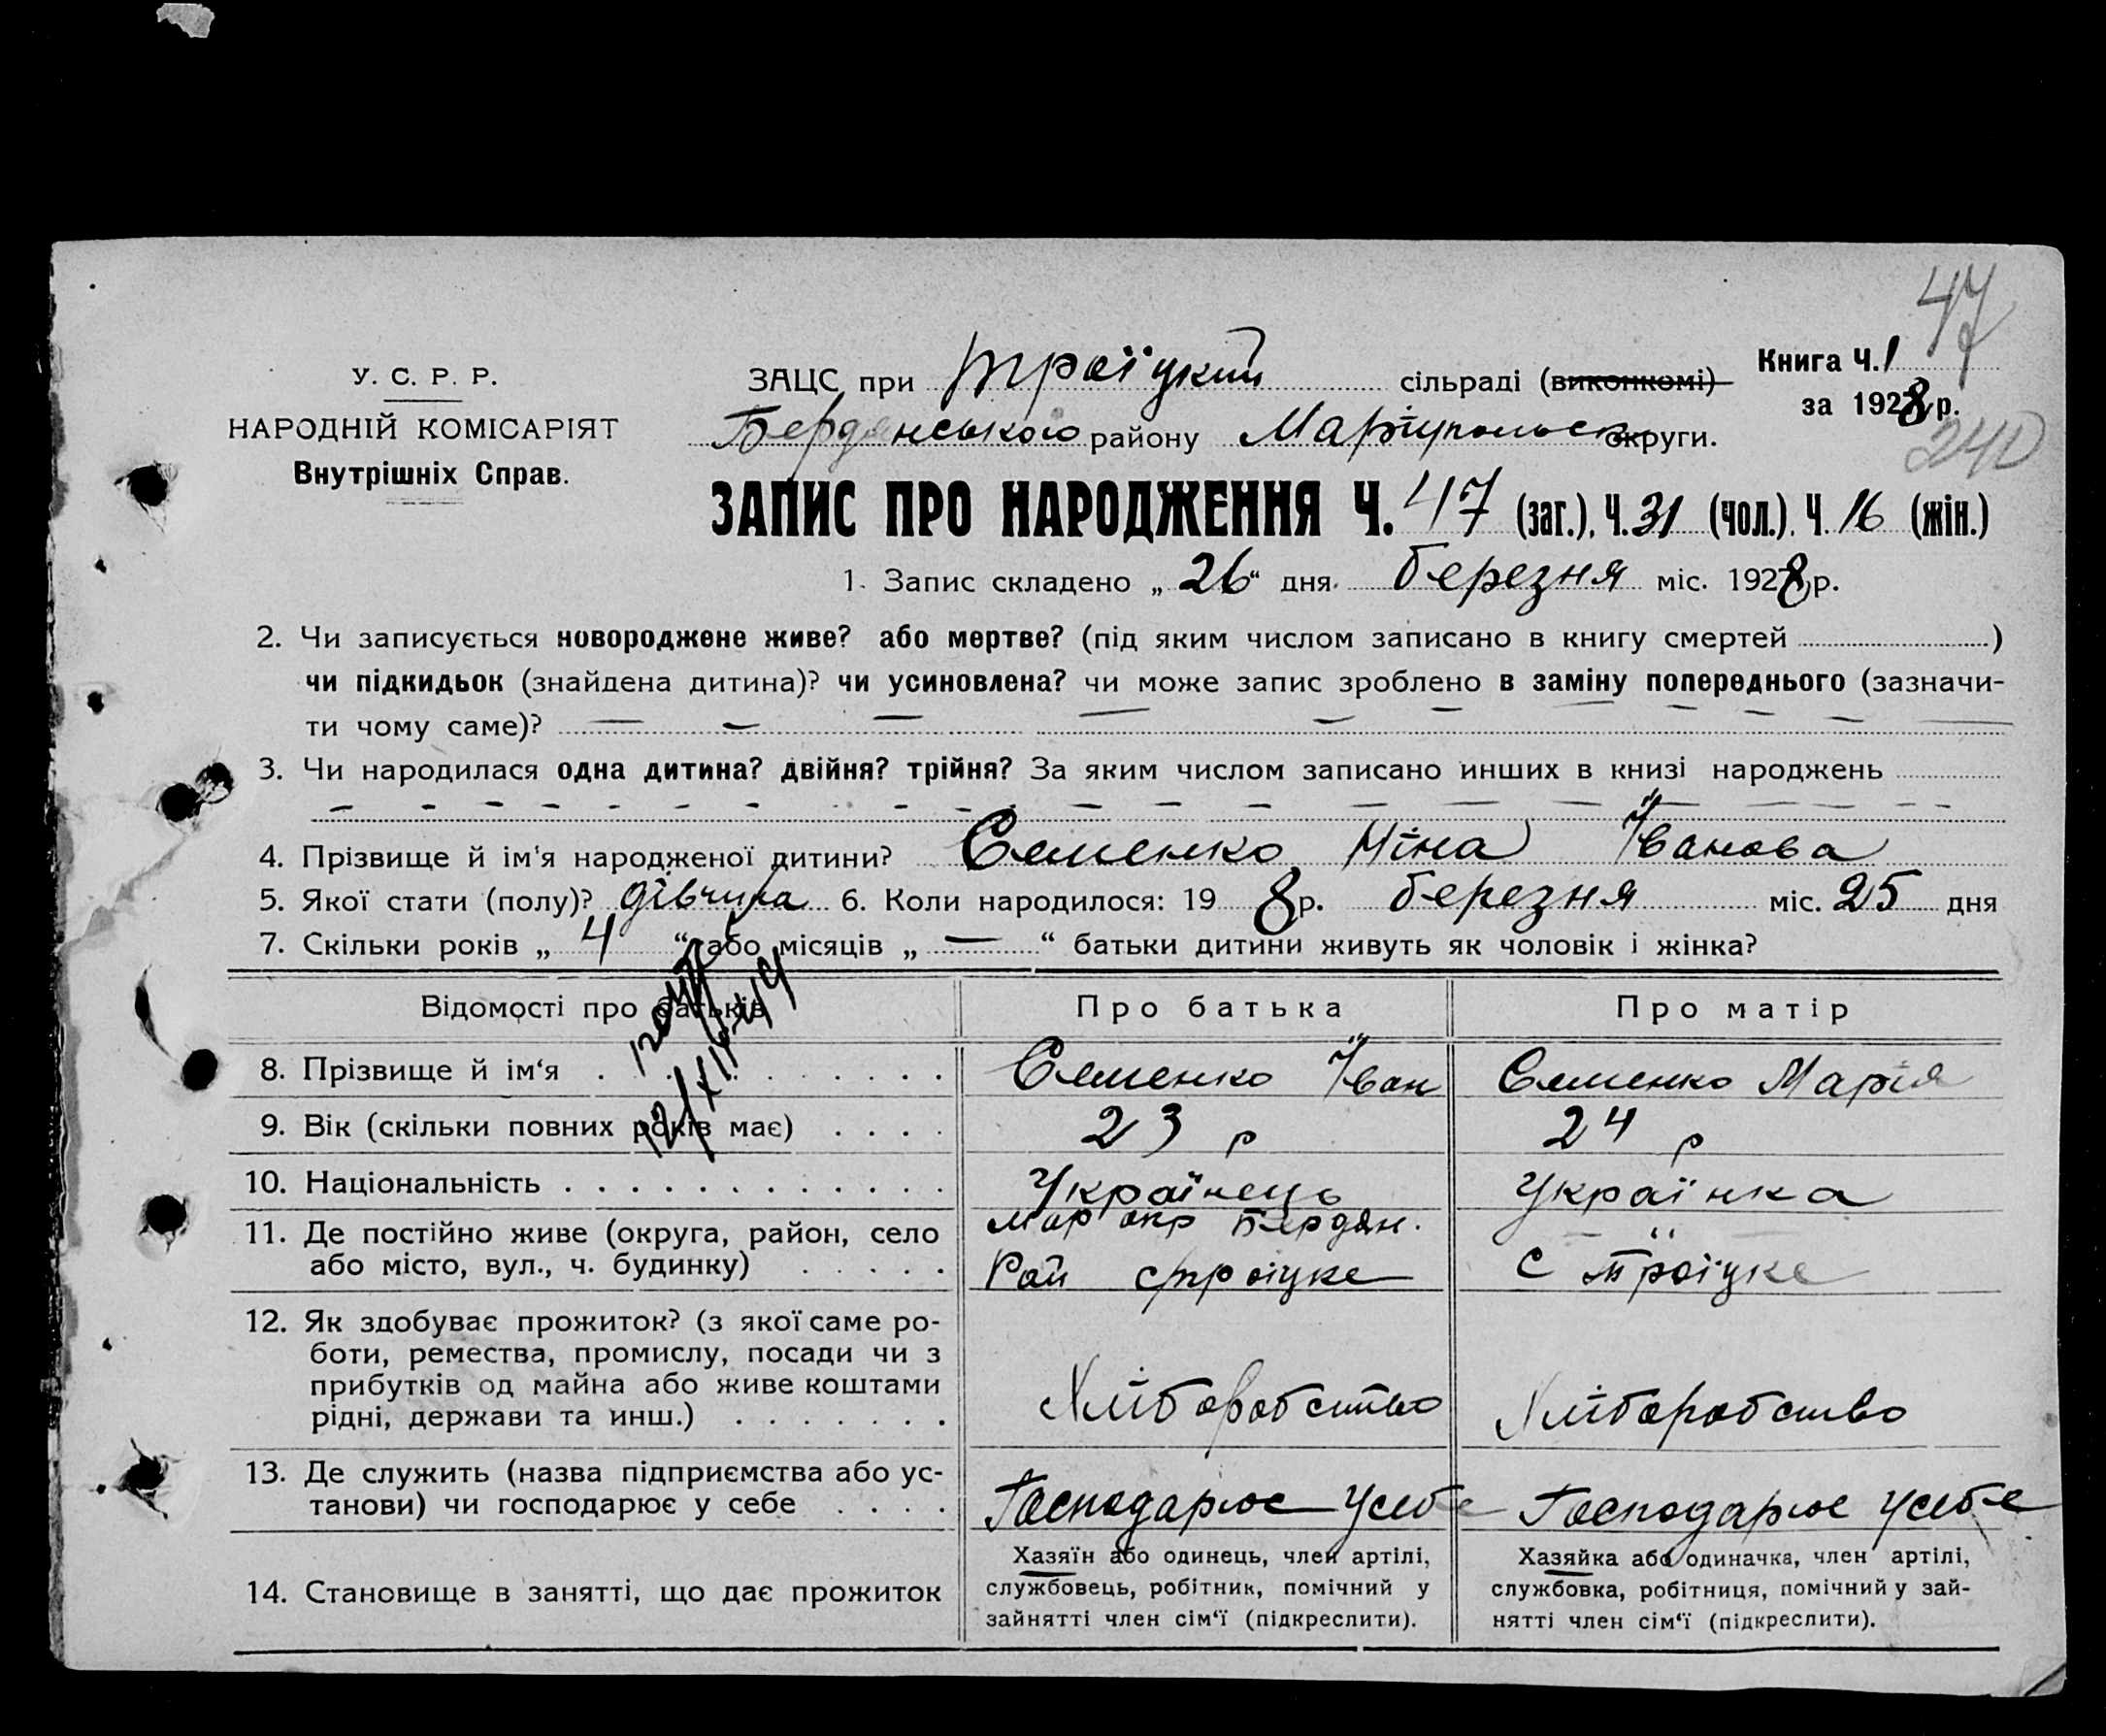 47
У. С. Р. Р.
НАРОДНІЙ КОМІСАРІЯТ
Внутрішніх Справ.
ЗАЦС при Троїцкий сільраді (виконкомі)
Бердянського району Маріупольськ округи.
Книга Ч. 1
за 1928 р.
240
ЗАПИС ПРО НАРОДЖЕННЯ Ч. 47 (заг.), Ч. 31 (чол.), Ч. 16 (жін.)
1. Запис складено „ 26 “ дня березня міс. 1928 р.
2. Чи записується новороджене живе? або мертве? (під яким числом записано в книгу смертей )
чи підкидьок (знайдена дитина)? чи усиновлена? чи може запис зроблено в заміну попереднього (зазначи-
ти чому саме)? — — — — — — — — — —
3. Чи народилася одна дитина? двійня? трійня? За яким числом записано инших в книзі народжень
4. Прізвище й ім'я народженої дитини? Семенко Міна Іванова
5. Якої стати (полу)? дівчина 6. Коли народилося: 19 8 р. березня міс. 25 дня
7. Скільки років „ 4 “ або місяців „ — “ батьки дитини живуть як чоловік і жінка?
Відомості про батьків Про батька Про матір
8. Прізвище й ім‘я . Семенко Іван Семенко Марія
9. Вік (скільки повних років має) . . . . 23 р 24 р
10. Національність . . . . Українець Українка
11. Де постійно живе (округа, район, село Мар окр Бердян. — " —
або місто, вул., ч. будинку) . . . . . Рай с троіцке С троіцке
12. Як здобуває прожиток? (з якої саме ро-
боти, ремества, промислу, посади чи з
прибутків од майна або живе коштами
рідні, держави та инш.) . . . . . . . Хліборобство Хліборобство
13. Де служить (назва підприємства або ус-
танови) чи господарює у себе . . . . Господарює усебе Господарює усебе
14. Становище в занятті, що дає прожиток
Хазяїн або одинець, член артілі,
службовець, робітник, помічний у
зайнятті член сім‘ї (підкреслити).
Хазяйка або одиначка, член артілі,
службовка, робітниця, помічний у зай-
нятті член сім‘ї (підкреслити).